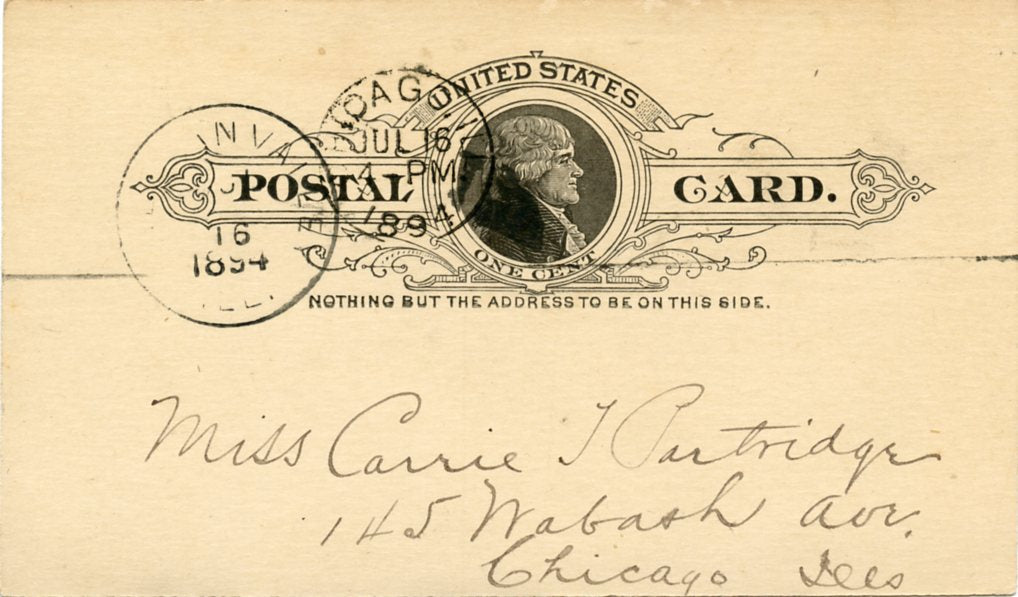 UNITED STATES
POSTAL CARD.
ONE CENT
NOTHING BUT THE ADDRESS TO BE ON THIS SIDE.
JUL 16
4 PM
1894
16
1894
ILL.
Miss Carrie T Partridge
145 Wabash Ave.
Chicago Ills